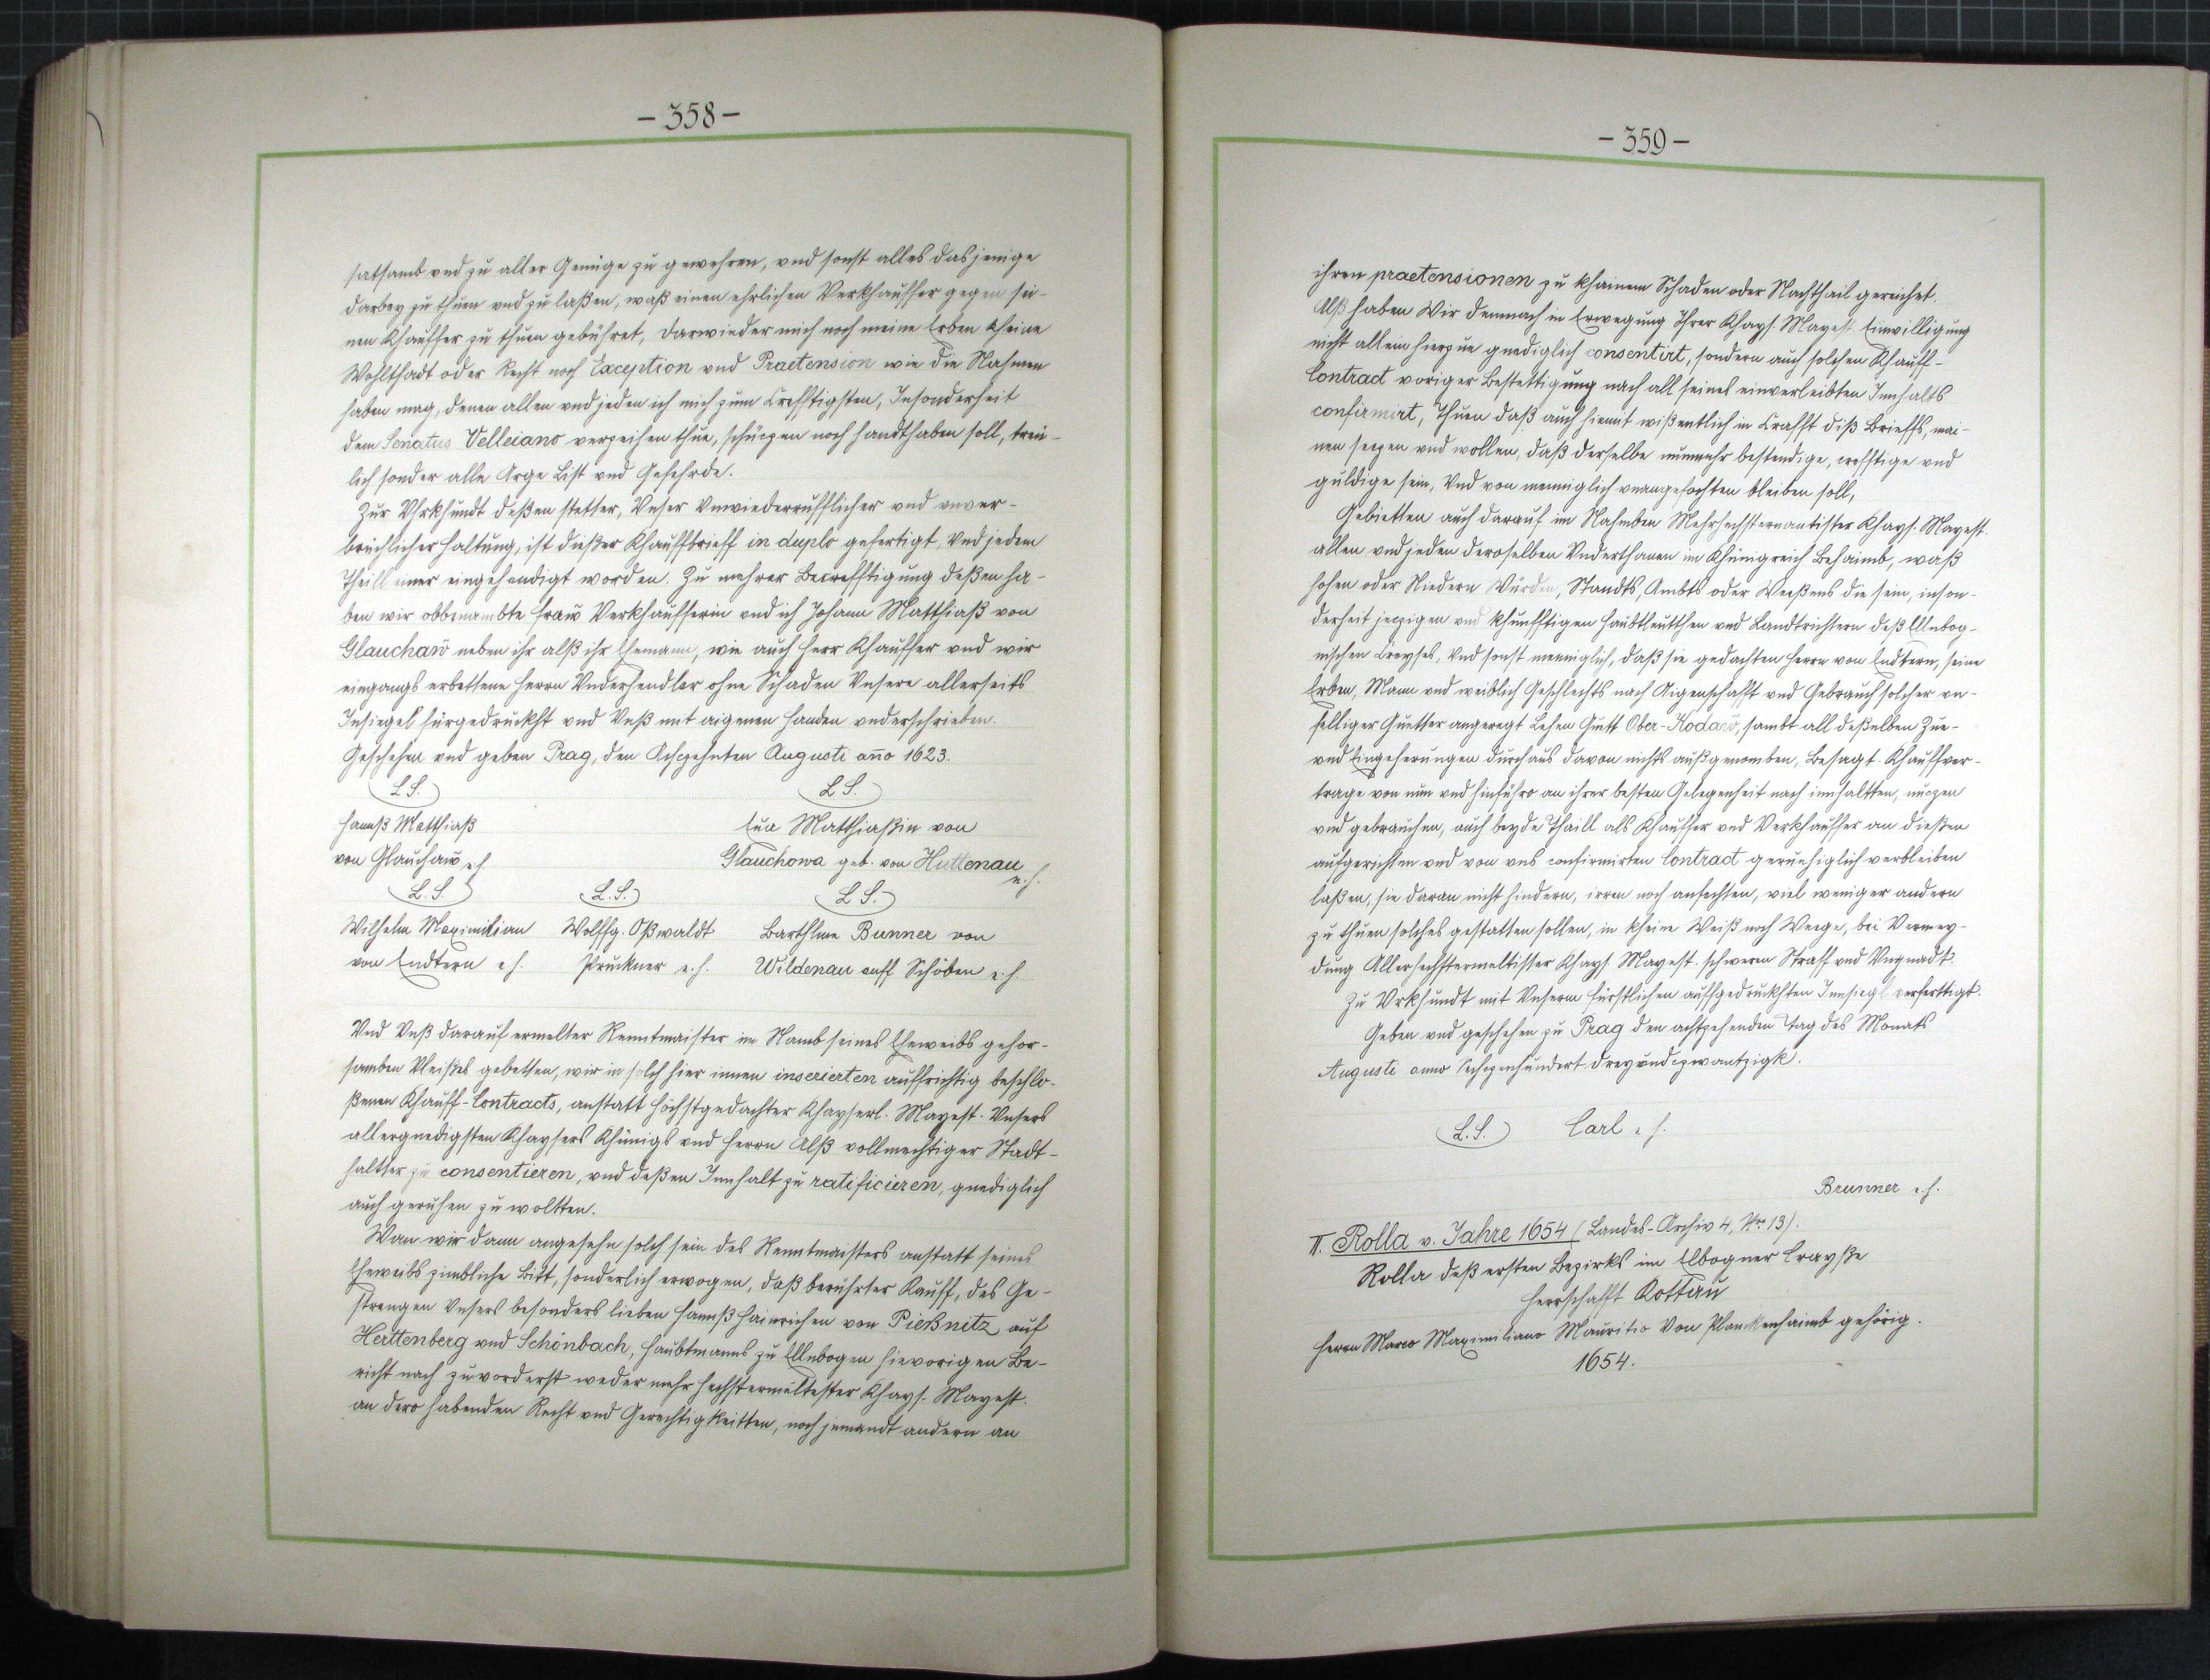 - 358 -
satsamb vnd zu aller Genüge zu gewehren, vnd sonst alles dasjenige
darbey zu thuen vnd zu laßen, waß einen ehrlichen Verkhauffer gegen sei-
nen Khauffer zu thuen gebühret, darwieder mich noch meine Erben kheine
Wohlthadt oder Recht noch Exception vnd Praetension wie die Nahmen
haben mag, denen allen vnd jeden ich mich zum Crefftigsten, Insonderheit
dem Senatus Velleiano verzeihen thue, schüczen noch handthaben soll, treu-
lich sonder alle Arge List vnd Gefehrde.
Zur Vhrkhundt deßen stetter, Vnser Vnwiederrufflicher vnd vnver-
brüchlicher haltung, ist dießer Khauffbrieff in duplo gefertigt, Vnd jedem
Theill einer eingehendigt worden. Zu mehrer Becrefftigung deßen ha-
ben wir obbenambte fraw Verkhaufferin vnd ich Johann Matthiaß von
Glauchaw neben ihr alß ihr Ehemann, wie auch Herr Khauffer vnd wir
eingangs erbettene Herrn Vnderhendler ohne Schaden Vnsere allerseits
Insiegel fürgedruckht vnd Vnß mit aigenen Handen vnderschrieben.
Geschehen vnd geben Prag, den Achzehnten Augusti año 1623.
L.S. L.S.
Hannß Matthiaß Eua Matthiaßin von
von Glauchaw e.h. Glauchowa geb. von Huttenau e.h.
L.S. L.S. L.S.
Wilhelm Maximilian Wolffg. Oßwaldt Barthlme Bunner von
von Endtern e.h. Pruckner e.h. Wildenau auff Schöben e.h.
Vnd Vnß darauf ermelter Renntmaister im Namb seines Eheweibs gehor-
samben Vleißes gebetten, wir in solch hier innen inserierten auffrichtig beschlo-
ßenen Khauff-Contracts, anstatt höchstgedachter Khayserl. Mayest. Vnsers
allergnedigsten Khaysers Khünigs vnd Herrn Alß vollmechtiger Stadt-
haltter zu consentieren, vnd deßen Innhalt zu ratificieren, gnediglich
auch geruhen zu woltten.
Wan wir dann angesehn solch sein des Renntmaisters anstatt seines
Eheweibs zimbliche Bitt, sonderlich erwogen, daß berührter Kauff, des Ge-
strengen Vnsers besonders lieben Hannß Hainrichen von Pießnitz auf
Herttenberg vnd Schönbach, Haubtmanns zu Ellnbogen hievorigen Be-
richt nach zuvorderst weder mehr hechstermeltester Khays. Mayest.
an dero habenden Recht vnd Gerechtigkeitten, noch jemandt andern an
- 359 -
ihren praetensionen zu khainem Schaden oder Nachthail gereichet.
Alß haben Wir demnach in Erwegung Ihrer Khays. Mayest. Einwilligung
nicht allein hierzue gnediglich consentirt, sondern auch solchen Khauff-
Contract voriger Bestettigung nach all seines einverleibten Innhalts
confirmirt, Thuen daß auch hiemit wißentlich in Crafft diß Brieffs, mai-
nen seczen vnd wollen, daß derselbe nunmehr bestendige, crefftige vnd
güldige sein, Vnd von menniglich vnangefochten bleiben soll,
Gebietten auch darauf im Nahmben Mehrhechsternantister Khays. Mayest.
allen vnd jeden deroselben Vnderthanen im Khünigreich Behaimb, waß
hohen oder Niedern Würden, Standts, Ambts oder Weeßens die sein, inson-
derheit jeczigen vnd khunfftigen Haubtleutthen vnd Landtrichtern deß Ellnbog-
nischen Creyses, Vnd sonst menniglich, daß sie gedachten Herrn von Endtern, seine
Erben, Mann vnd weiblich Geschlechts nach Aigenschafft vnd Gebrauch solcher vn-
felliger Guetter angeregt Lehen Guett Ober-Kodaw, sambt all deßelben Zue-
vnd Eingeherungen durchaus davon nichts außgenomben, Besagt Khauffver-
trage von nun vnd hinführo an ihrer besten Gelegenheit nach innhaltten, nuczen
vnd gebrauchen, auch beyde Thaill als Khauffer vnd Verkhauffer an dießen
aufgerichten vnd von vns confirmirten Contract geruehiglich verbleiben
laßen, sie daran nicht hindern, irren noch anfechten, viel weniger andern
zu thuen solches gestatten sollen, in kheine Weiß noch Weege, bei Vermey-
dung Allerhechstermeltister Khays. Mayest. schweren Straff vnd Vngnadt.
Zu Vrkhundt mit Vnserm fürstlichen auffgedruckhten Innsiegl verferttigt.
Geben vnd geschehen zu Prag den achtzehenden Tag des Monats
Augusti anno Sechzenhundert dreyundczwantzigk.
L.S. Carl e.h.
Brunner e.h.
II. Rolla v. Jahre 1654 (Landes-Archiv 4, Nr. 13).
Rolla deß ersten Bezirks im Elbogner Crayße
Herrschafft Kottau
Herrn Marco Maximiliano Mauritio Von Planckenhaimb gehörig.
1654.